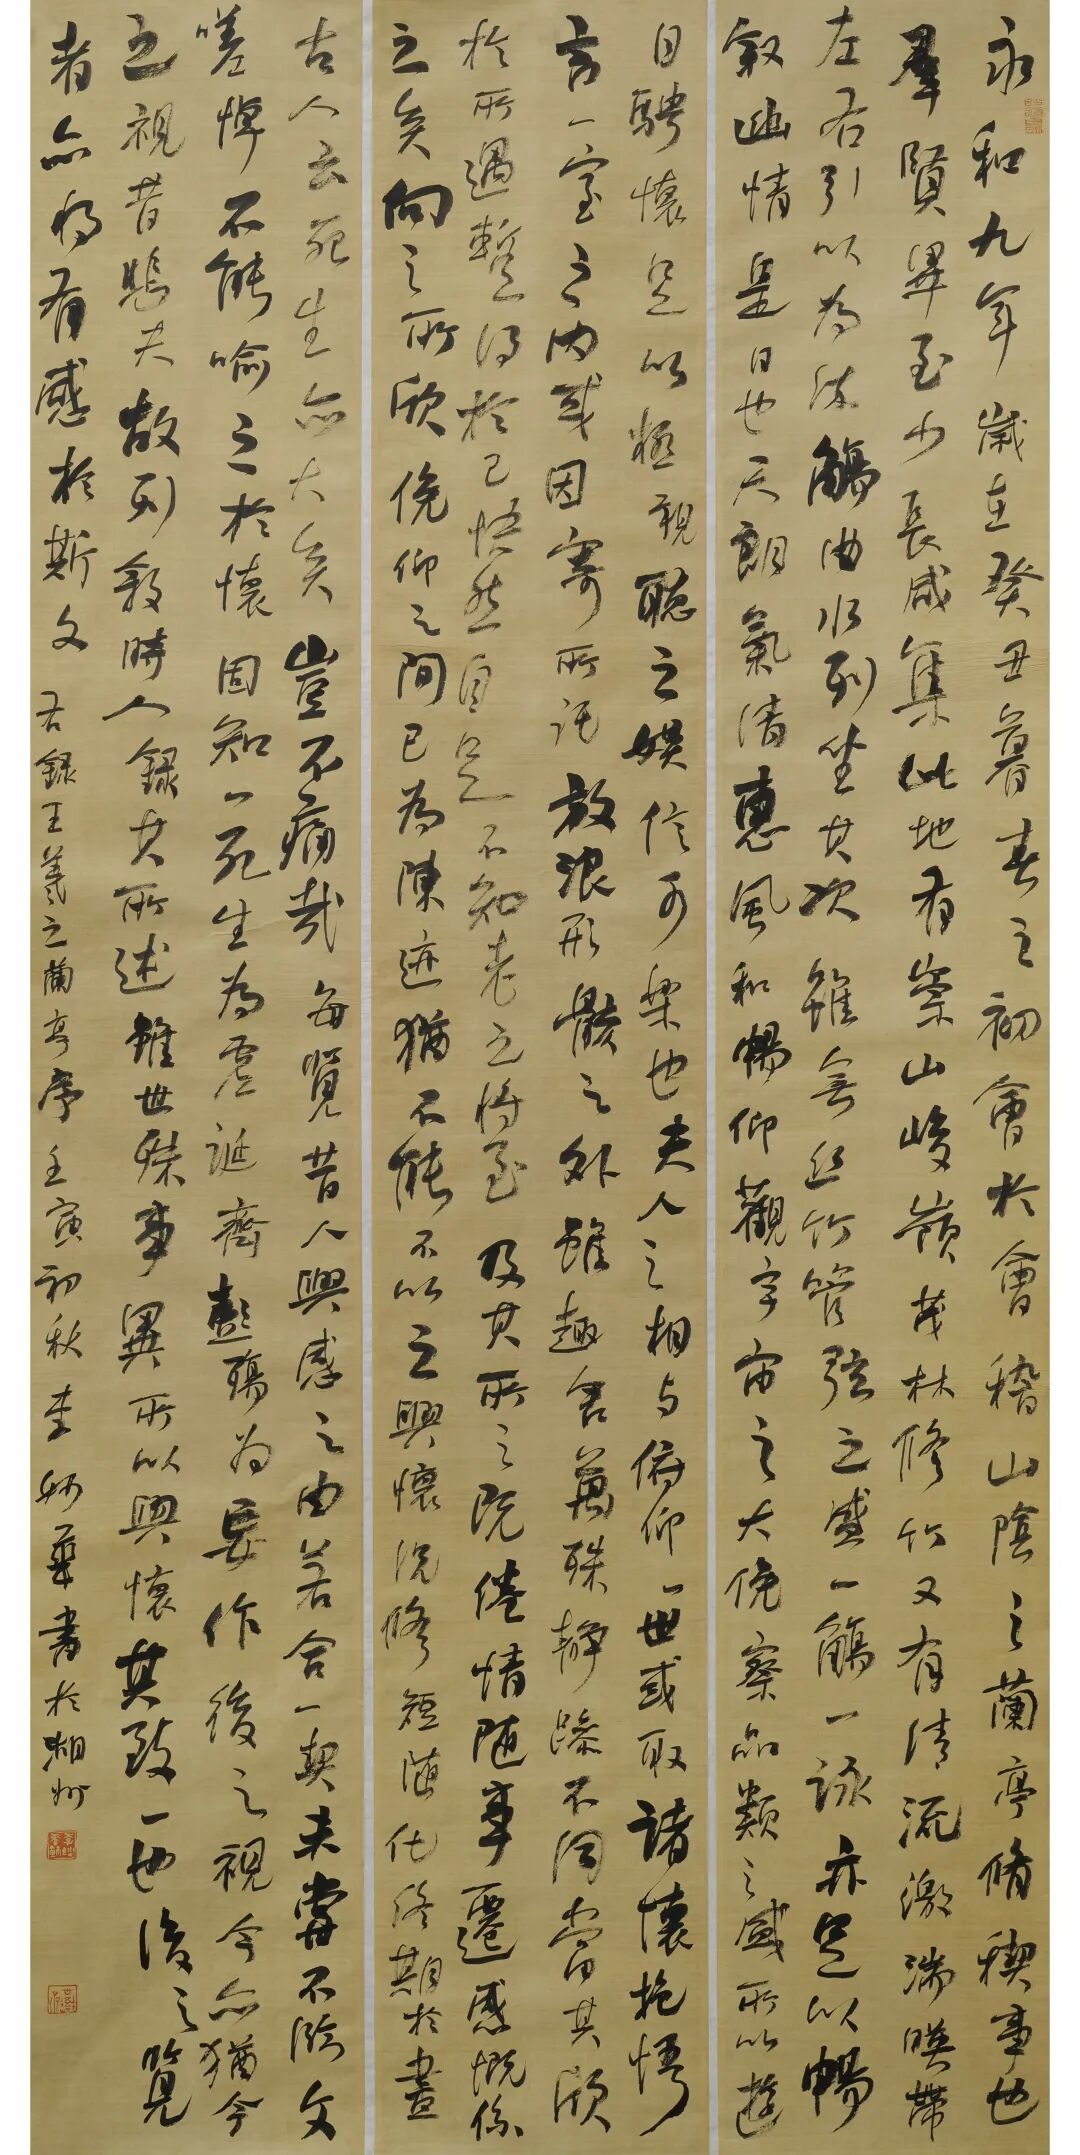 永和九年歲在癸丑暮春之初會於會稽山陰之蘭亭脩稧事也
羣賢畢至少長咸集此地有崇山峻嶺茂林修竹又有清流激湍暎帶
左右引以為流觴曲水列坐其次雖無絲竹管弦之盛一觴一詠亦足以暢
敘幽情是日也天朗氣清惠風和暢仰觀宇宙之大俛察品類之盛所以遊
目騁懷足以極視聽之娛信可樂也夫人之相與俯仰一世或取諸懷抱悟
言一室之內或因寄所託放浪形骸之外雖趣舍萬殊靜躁不同當其欣
於所遇暫得於己快然自足不知老之將至及其所之既倦情隨事遷感慨係
之矣向之所欣俛仰之間已為陳迹猶不能不以之興懷況脩短隨化終期於盡
古人云死生亦大矣豈不痛哉每覽昔人興感之由若合一契未嘗不臨文
嗟悼不能喻之於懷固知一死生為虛誕齊彭殤為妄作後之視今亦猶今
之視昔悲夫故列敘時人錄其所述雖世殊事異所以興懷其致一也後之覽
者亦將有感於斯文 右錄王羲之蘭亭序壬寅初秋李妙華書於湖州